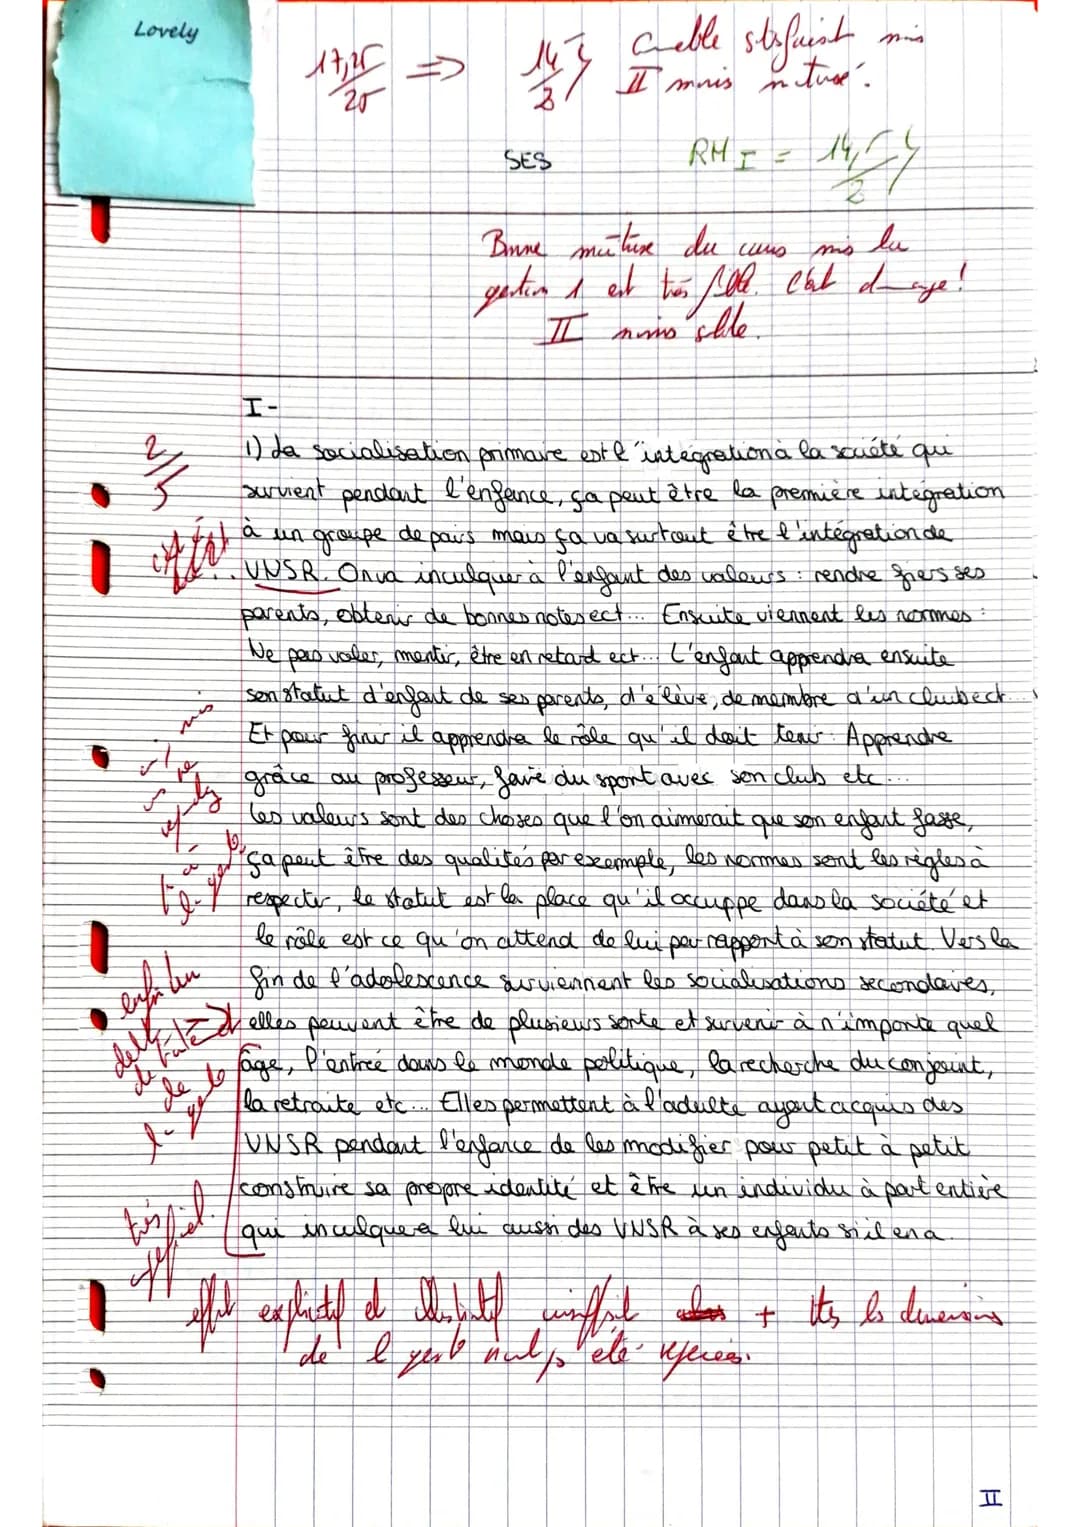 Lovely
17,25/20 ⇒ 14,5
II mais
SES
RM I = 14,5
Bonne maîtrise du cours mais la
question 1 est très. C'est dommage!
II moins
I-
1) La socialisation primaire est l'intégration à la société qui
2/5
survient pendant l'enfance, ça peut être la première intégration
à un groupe de pairs mais ça va surtout être l'intégration de
VNSR. On va inculquer à l'enfant des valeurs : rendre fiers ses
parents, obtenir de bonnes notes ect... Ensuite viennent les normes :
Ne pas voler, mentir, être en retard ect... L'enfant apprendra ensuite
son statut d'enfant de ses parents, d'élève, de membre d'un club ect...
Et pour finir il apprendra le rôle qu'il doit tenir : Apprendre
grâce au professeur, faire du sport avec son club etc...
Les valeurs sont des choses que l'on aimerait que son enfant fasse,
ça peut être des qualités par exemple, les normes sont les règles à
respecter, le statut est la place qu'il occuppe dans la société et
le rôle est ce qu'on attend de lui par rapport à son statut. Vers la
fin de l'adolescence surviennent les socialisations secondaires,
elles peuvent être de plusieurs sorte et survenir à n'importe quel
âge, l'entrée dans le monde politique, la recherche du conjoint,
la retraite etc... Elles permettent à l'adulte ayant acquis des
VNSR pendant l'enfance de les modifier pour petit à petit
construire sa propre identité et être un individu à part entière
qui inculquera lui aussi des VNSR à ses enfants s'il en a.
très
effort explicatif et illustratif + ttes les dimensions
de été
II